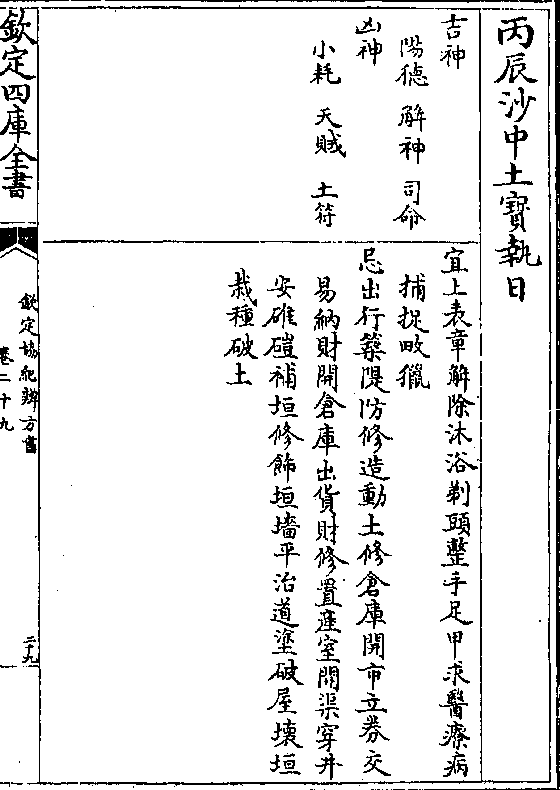 丙辰沙中土寳執日
吉神
陽德 解神 司命
凶神
小耗 天賊 土符
宜上表章解除沐浴剃頭整手足甲求醫療病
捕捉畋獵
忌出行築隄防修造動土修倉庫開市立券交
易納財開倉庫出貨財修置産室開渠穿井
安碓磑補垣修飾垣墻平治道塗破屋壊垣
栽種破土
欽定四庫全書
欽定協紀辨方書
卷二十九
二九